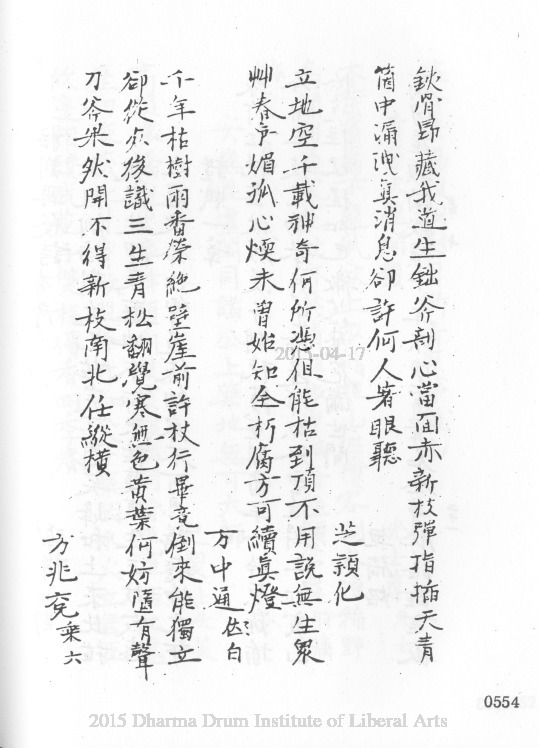 鈥骨昂藏我道生鈯斧剖心當面赤新枝彈指插天青
箇中漏洩真消息卻許何人著眼聽
芝頴化
立地空千載神奇何所憑但能枯到頂不用說無生眾
艸春爭媚孤心煖未曾始知全朽腐方可續眞燈
方中通位白
千年枯樹兩番榮絶壁崖前許杖行畢竟倒來能獨立
卻從夾後識三生青松翻覺寒無色黃葉何妨墮有聲
刀斧果然開不得新枝南北任縱橫
方兆兗乘六
2013-04-17
0554
2015 Dharma Drum Institute of Liberal Arts